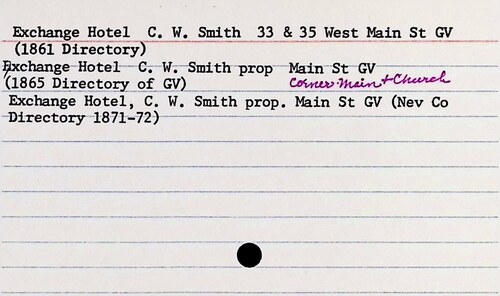 Exchange Hotel C. W. Smith 33 & 35 West Main St GV
(1861 Directory)
Exchange Hotel C. W. Smith prop Main St GV
(1865 Directory of GV) Corner Main & Church
Exchange Hotel, C. W. Smith prop. Main St GV (Nev Co
Directory 1871-72)